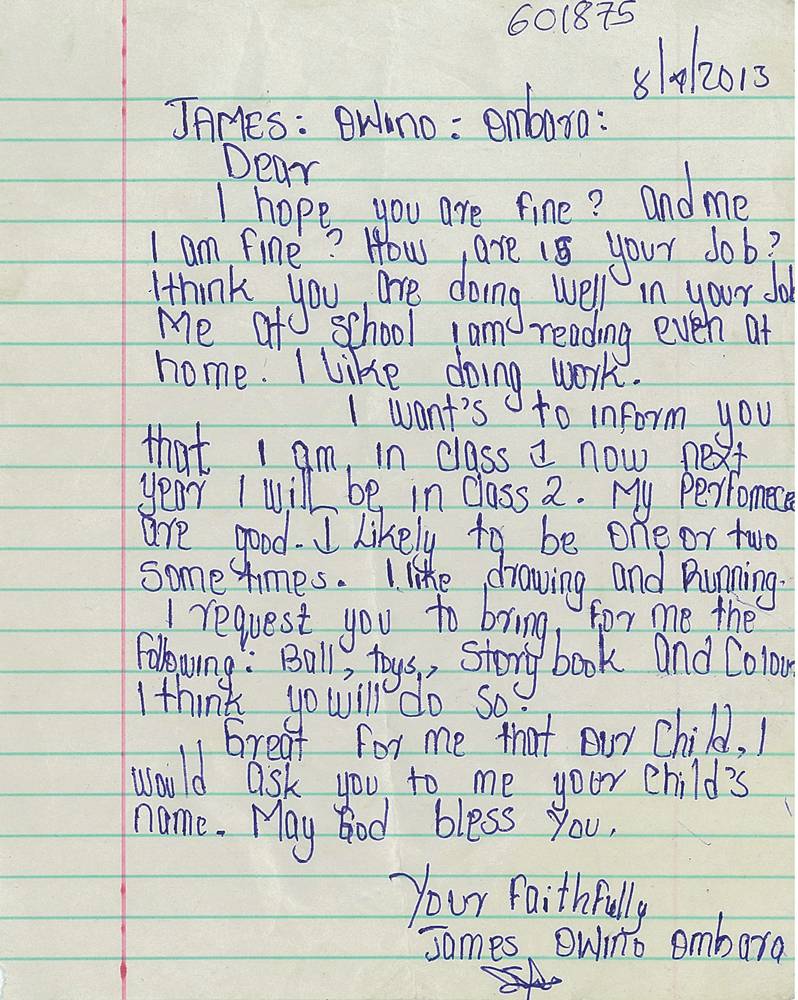 601875
8/4/2013
JAMES: OWINO: Ombara:
Dear
I hope you are fine? and me
I am fine? How are is your Job?
I think you are doing well in your Job
Me at school I am reading even at
home. I like doing work.
I want's to inform you
that I am in class 1 now next
year I will be in class 2. My Perfomece
are good. I Likely to be one or two
some times. I like drawing and Running.
I request you to bring for me the
following: Ball, toys, Story book and Colour
I think yo will do so.
Great for me that our Child, I
would ask you to me your child's
name. May God bless you.
Your Faithfully
James Owino Ombara